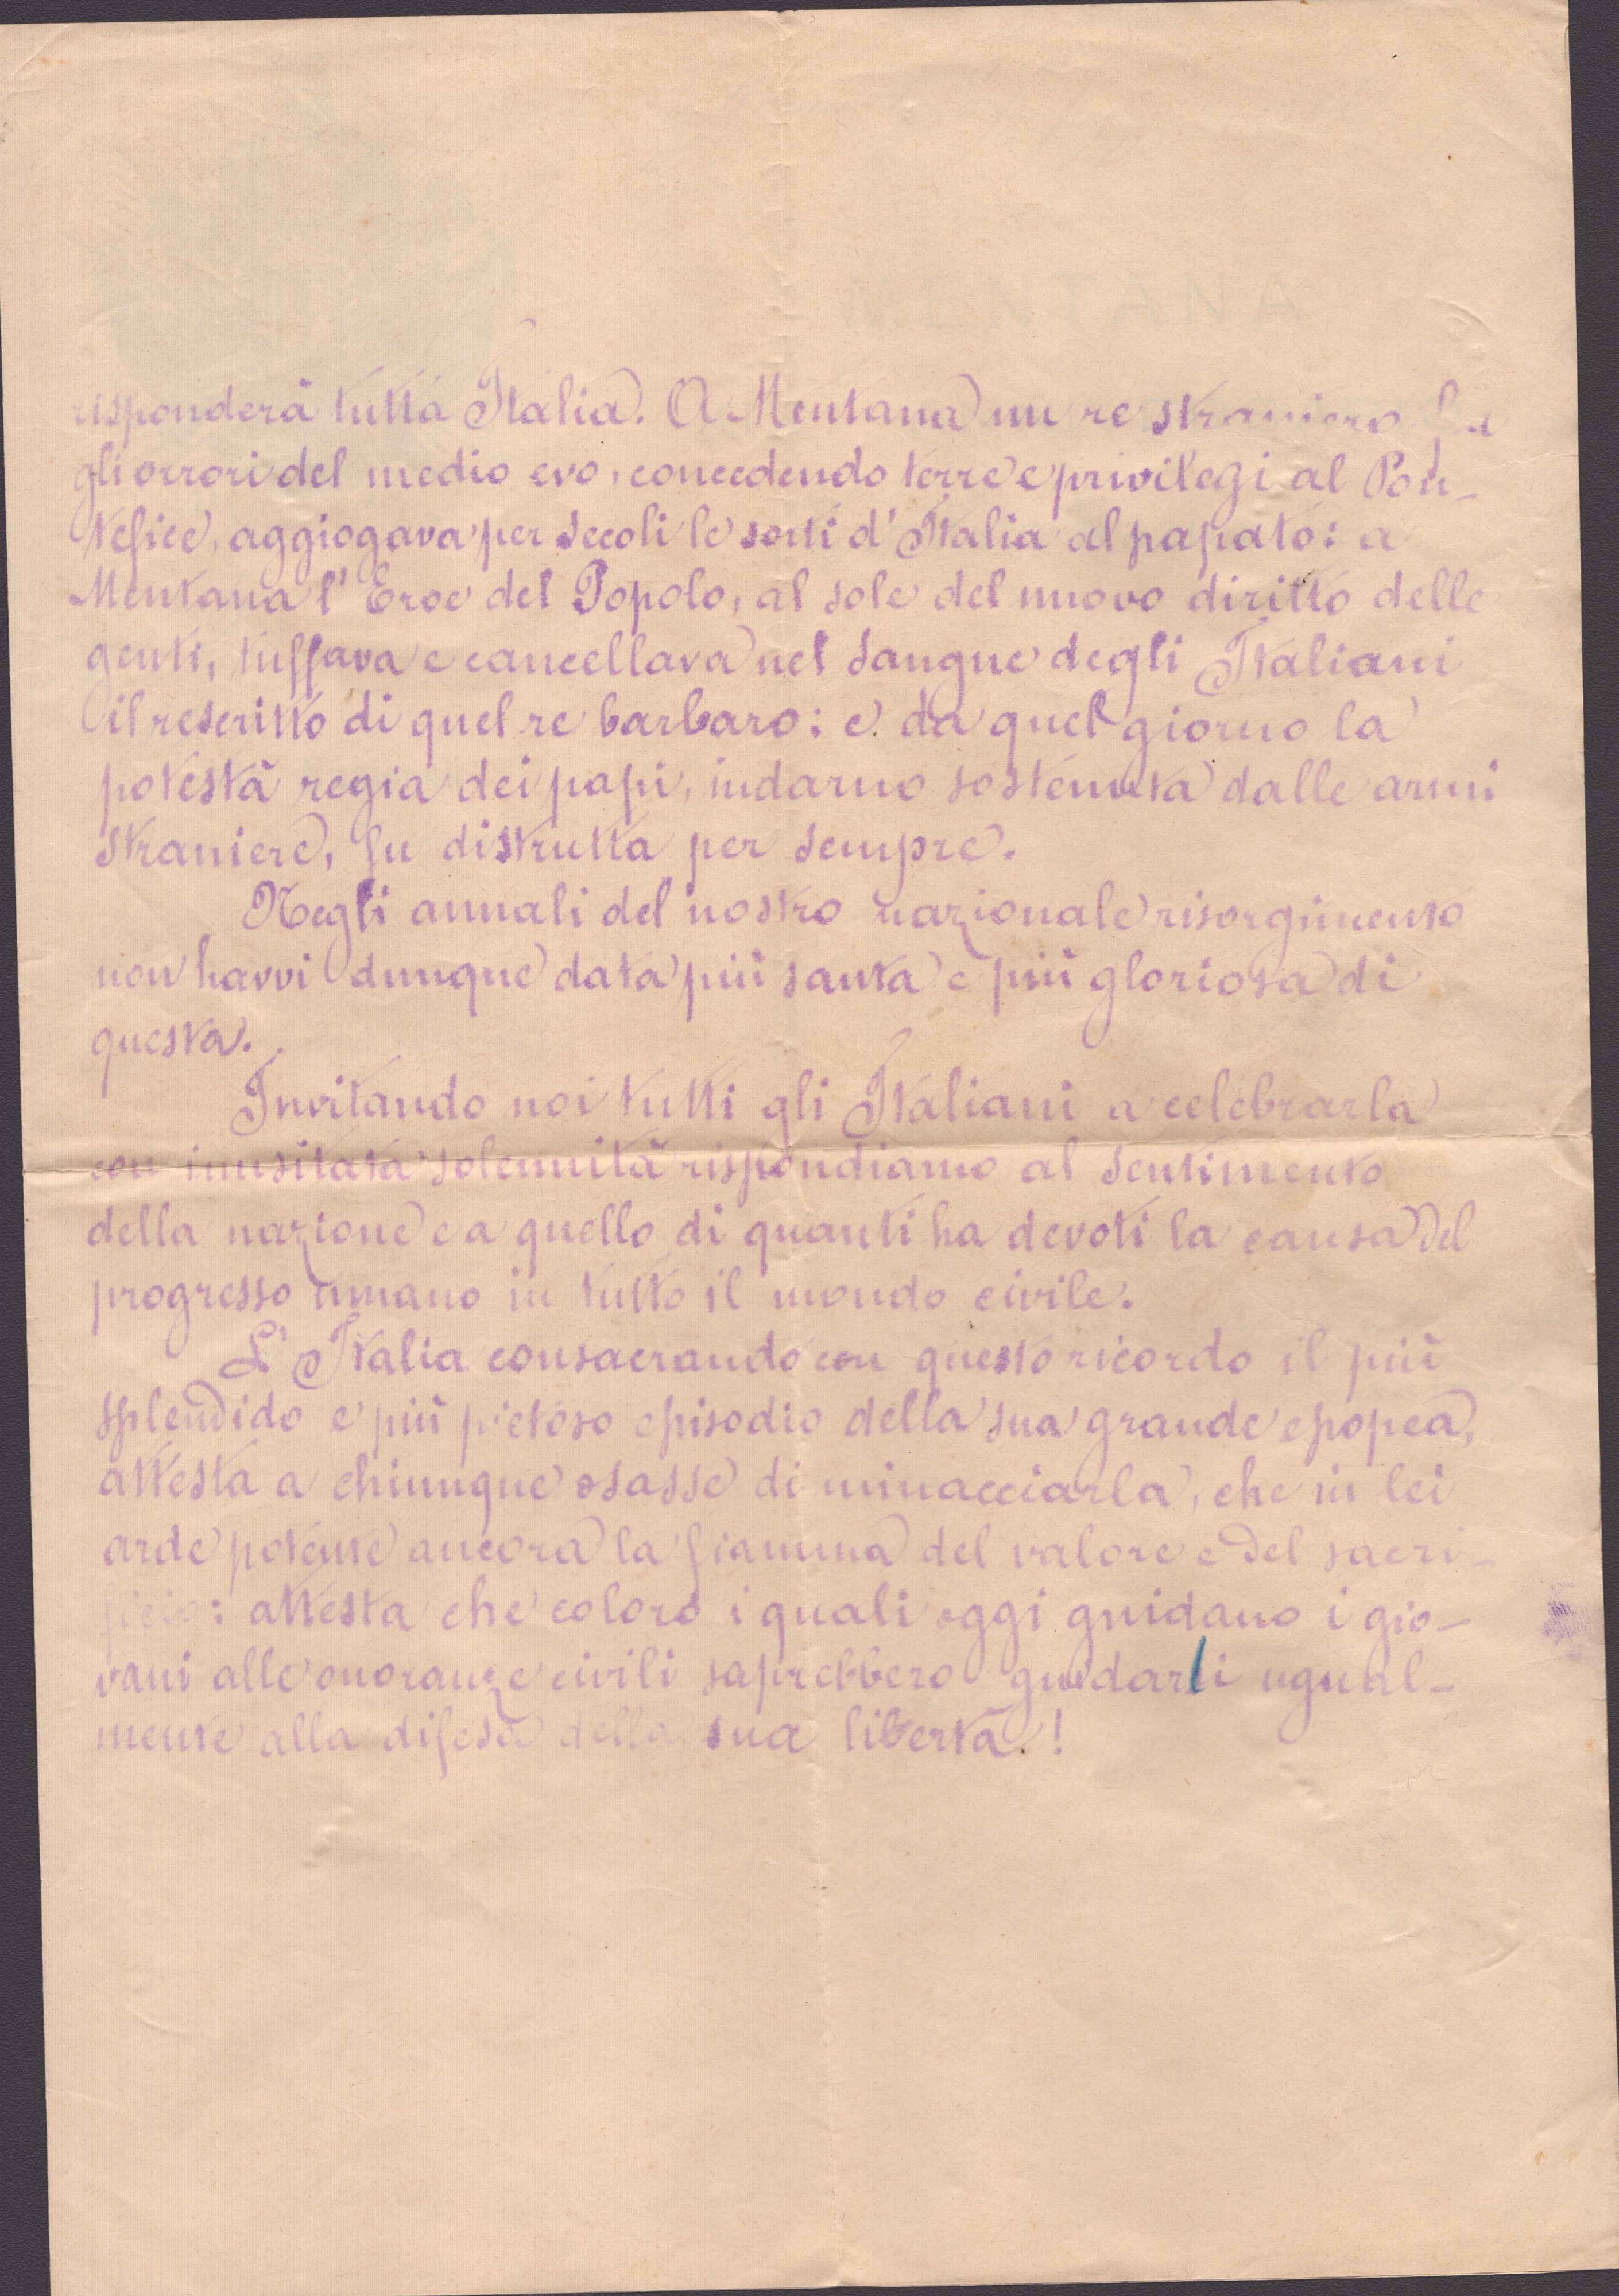 MENTANA
risponderà tutta Italia. A Mentana un re straniero fra
gli orrori del medio evo, concedendo terre e privilegi al Pon-
tefice, aggiogava per secoli le sorti d'Italia al papato: a
Mentana l'Eroe del Popolo, al sole del nuovo diritto delle
genti, tuffava e cancellava nel sangue degli Italiani
il rescritto di quel re barbaro: e da quel giorno la
potestà regia dei papi, indarno sostenuta dalle armi
straniere, fu distrutta per sempre.
Negli annali del nostro nazionale risorgimento
non havvi dunque data più santa e più gloriosa di
questa.
Invitando noi tutti gli Italiani a celebrarla
con inusitata solennità rispondiamo al sentimento
della nazione e a quello di quanti ha devoti la causa del
progresso umano in tutto il mondo civile.
L'Italia consacrando con questo ricordo il più
splendido e più pietoso episodio della sua grande epopea,
attesta a chiunque osasse di minacciarla, che in lei
arde potente ancora la fiamma del valore e del sacri-
ficio: attesta che coloro i quali oggi guidano i gio-
vani alle onoranze civili saprebbero guidarli ugual-
mente alla difesa della sua libertà!